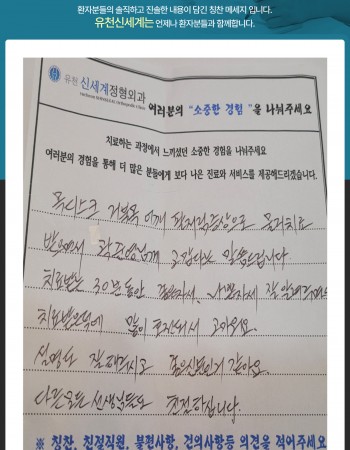 환자분들의 솔직하고 진솔한 내용이 담긴 칭찬 메세지 입니다.
유천신세계는 언제나 환자분들과 함께합니다.
유천 신세계정형외과
여러분의 "소중한 경험"을 나눠주세요
치료하는 과정에서 느끼셨던 소중한 경험을 나눠주세요
여러분의 경험을 통해 더 많은 분들에게 보다 나은 진료와 서비스를 제공해드리겠습니다.
목디스크 거북목 어깨 팔저림증상으로 도수치료
받으면서 곽 고맙다는 말씀드립니다
치료받는 30분동안 나쁜자세 잘
치료받은덕에 많이 호전되서 고마워요.
설명도 잘해주시고 좋은신분인거 같아요.
다른 모든 선생님들도 친절하십니다.
※ 칭찬, 친절직원, 불편사항, 건의사항등 의견을 적어주세요